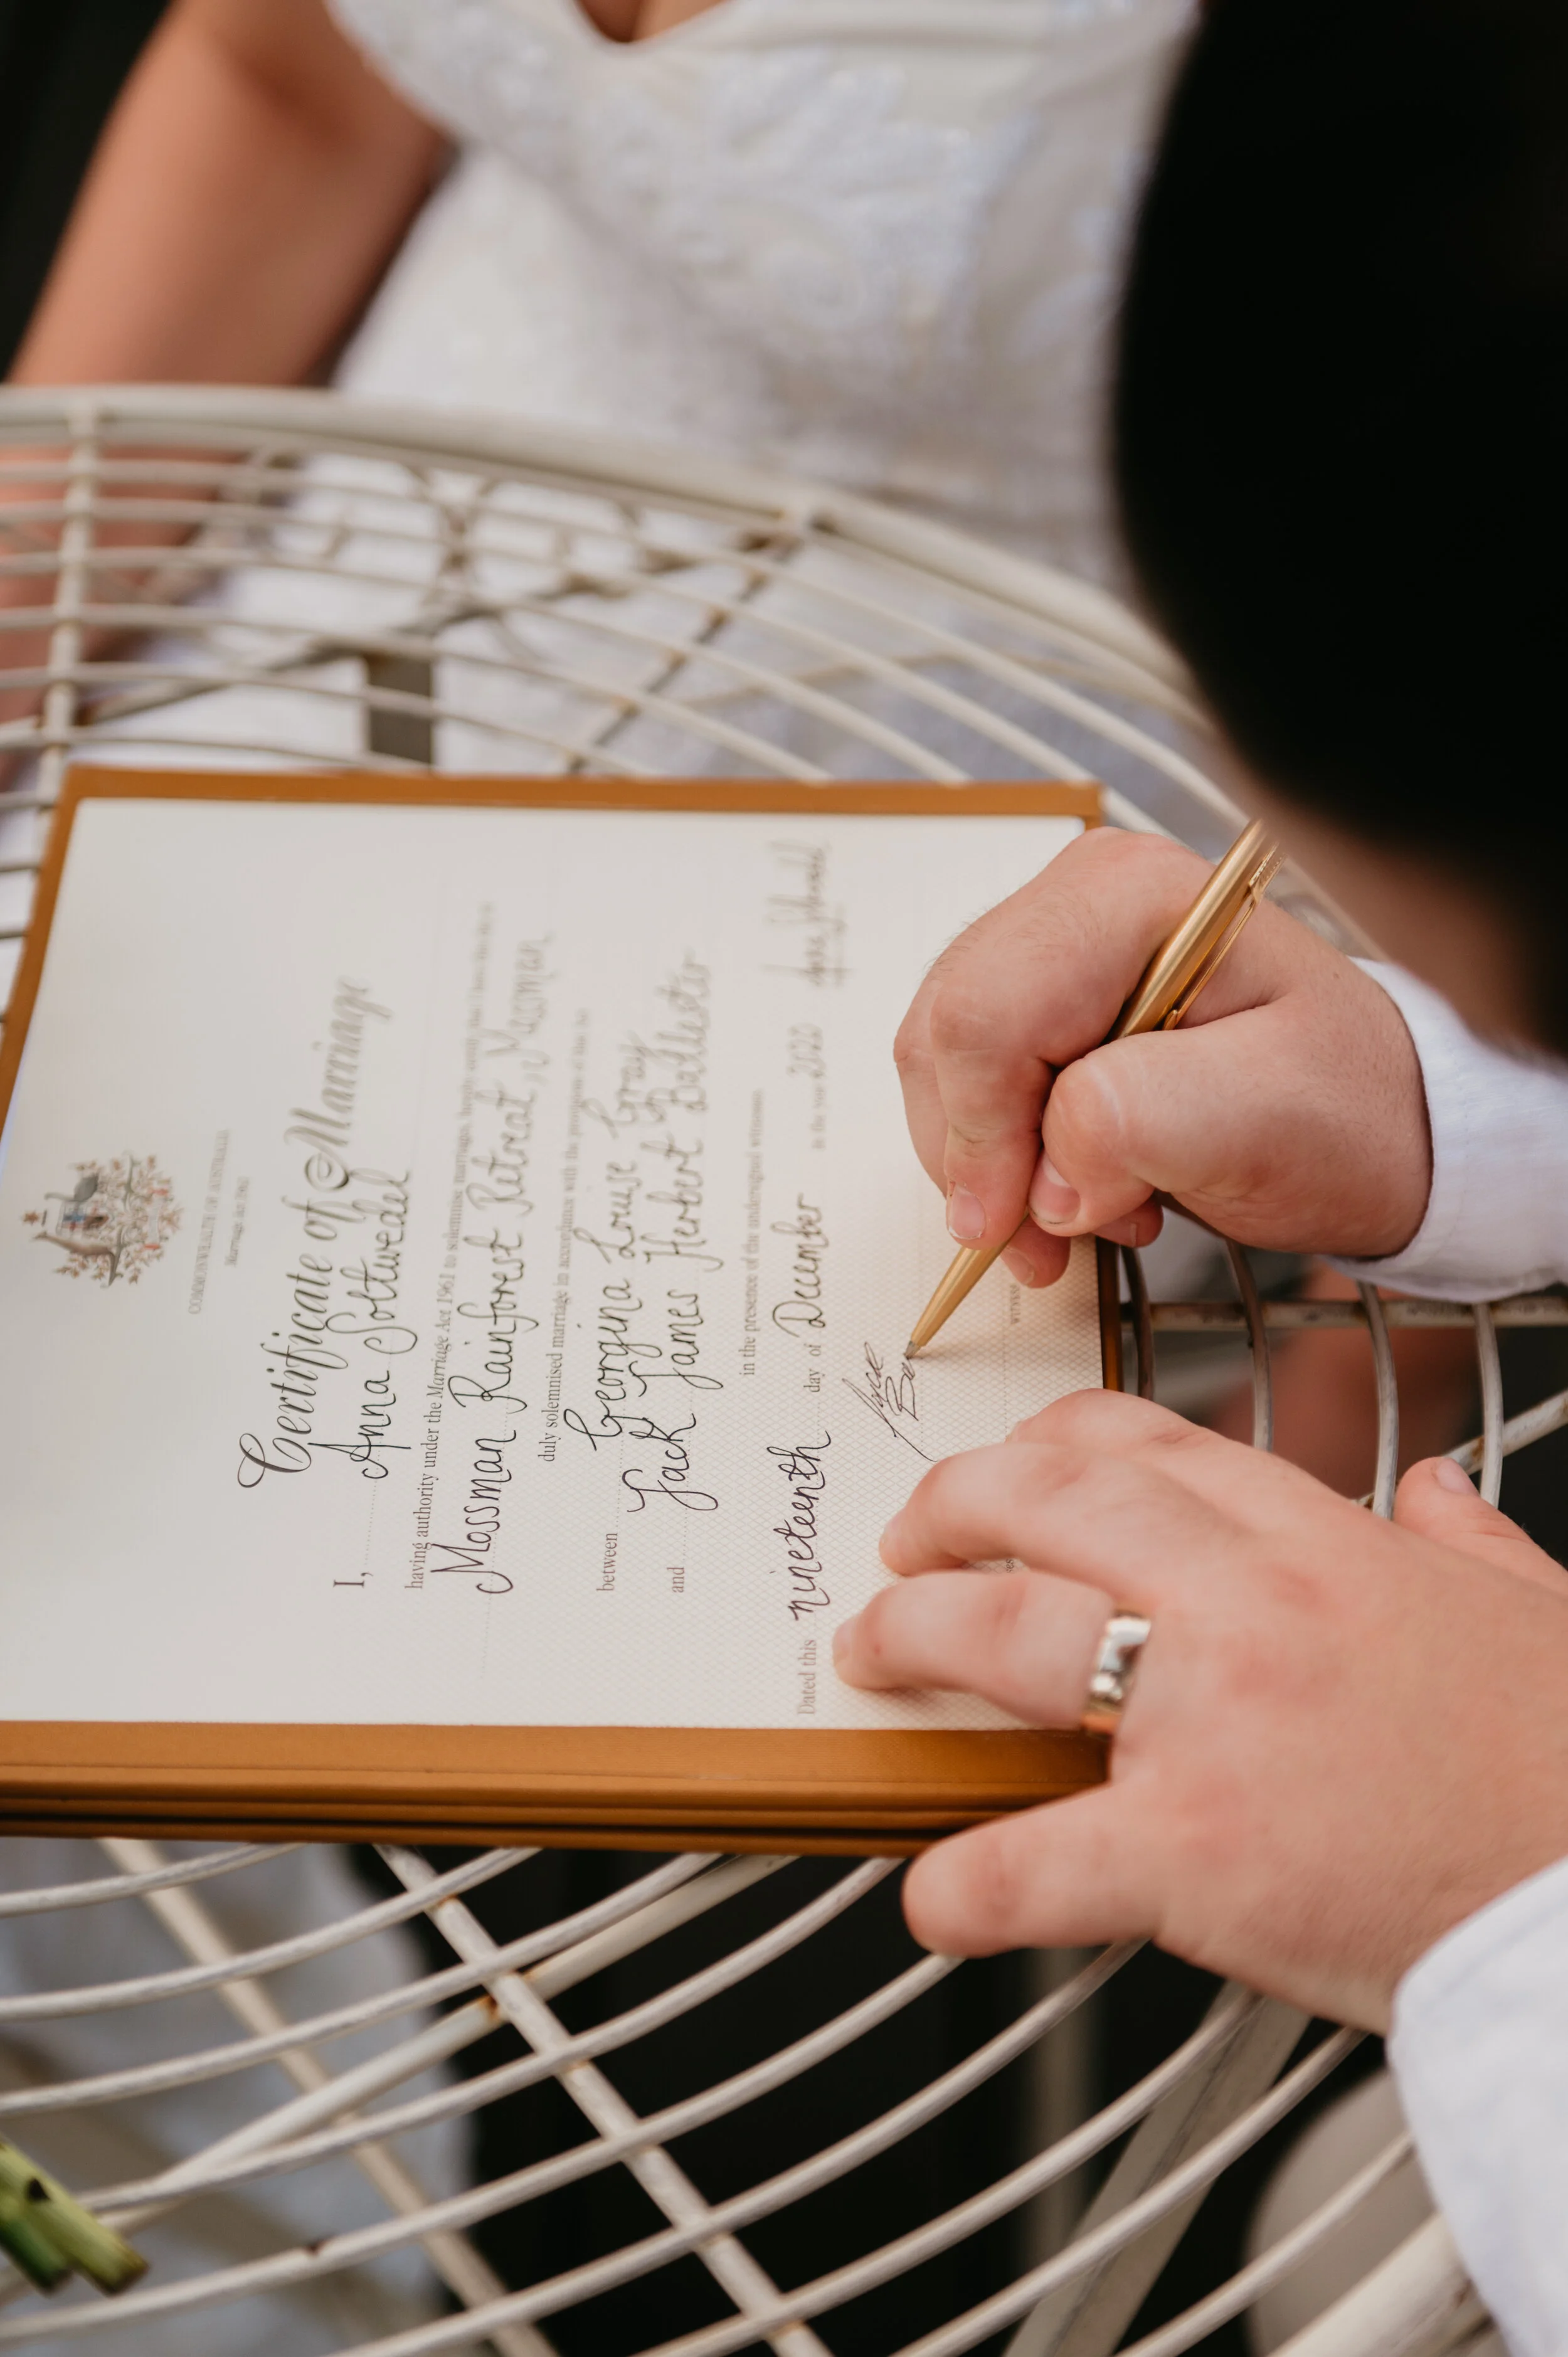 COMMONWEALTH OF AUSTRALIA
Marriage Act 1961
Certificate of Marriage
I, Anna Soltwedel
having authority under the Marriage Act 1961 to solemnise marriages, hereby certify that I have this day at
Mossman Rainforest Retreat, Mossman
duly solemnised marriage in accordance with the provisions of this Act
between Georgina Louise Gray
and Jack James Herbert
in the presence of the undersigned witnesses.
Dated this nineteenth day of December in the year 2020
Jack
WITNESS